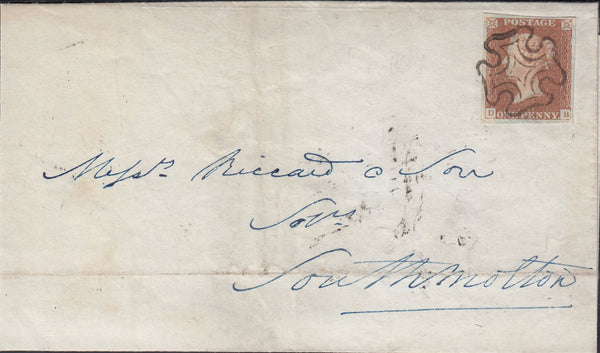 POSTAGE
D ONE PENNY H
Messrs. Riccard & Son
Solrs
Southmolton